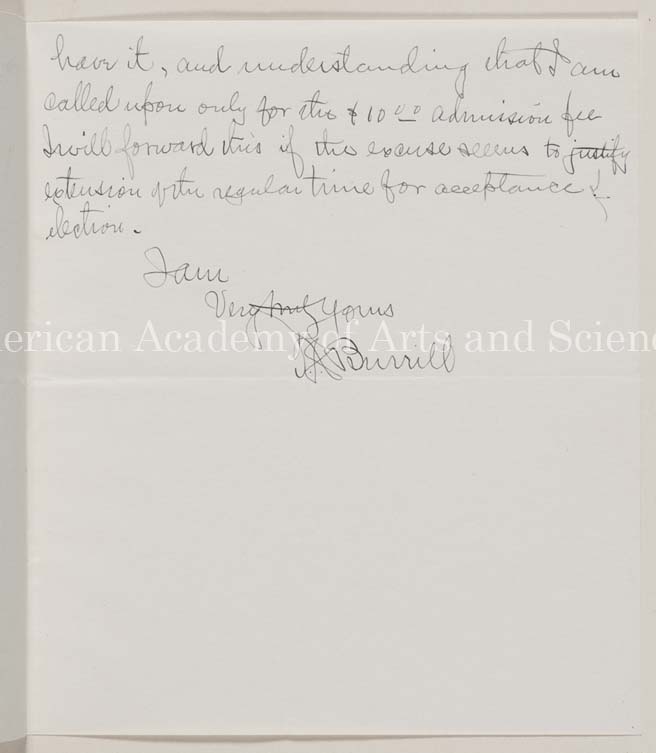 have it, and understanding that I am
called upon only for the $10.00 admission fee
I will forward this if the excuse seems to justify
extension of the regular time for acceptance of
election.
I am
Very truly yours
American Academy of Arts and Scienc
Burrill